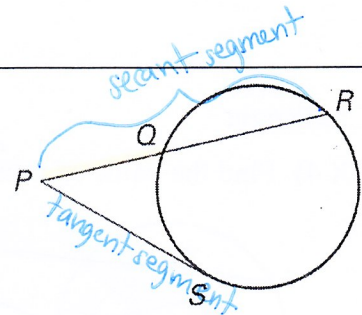 secant segment
R
Q
P
tangent segment
S